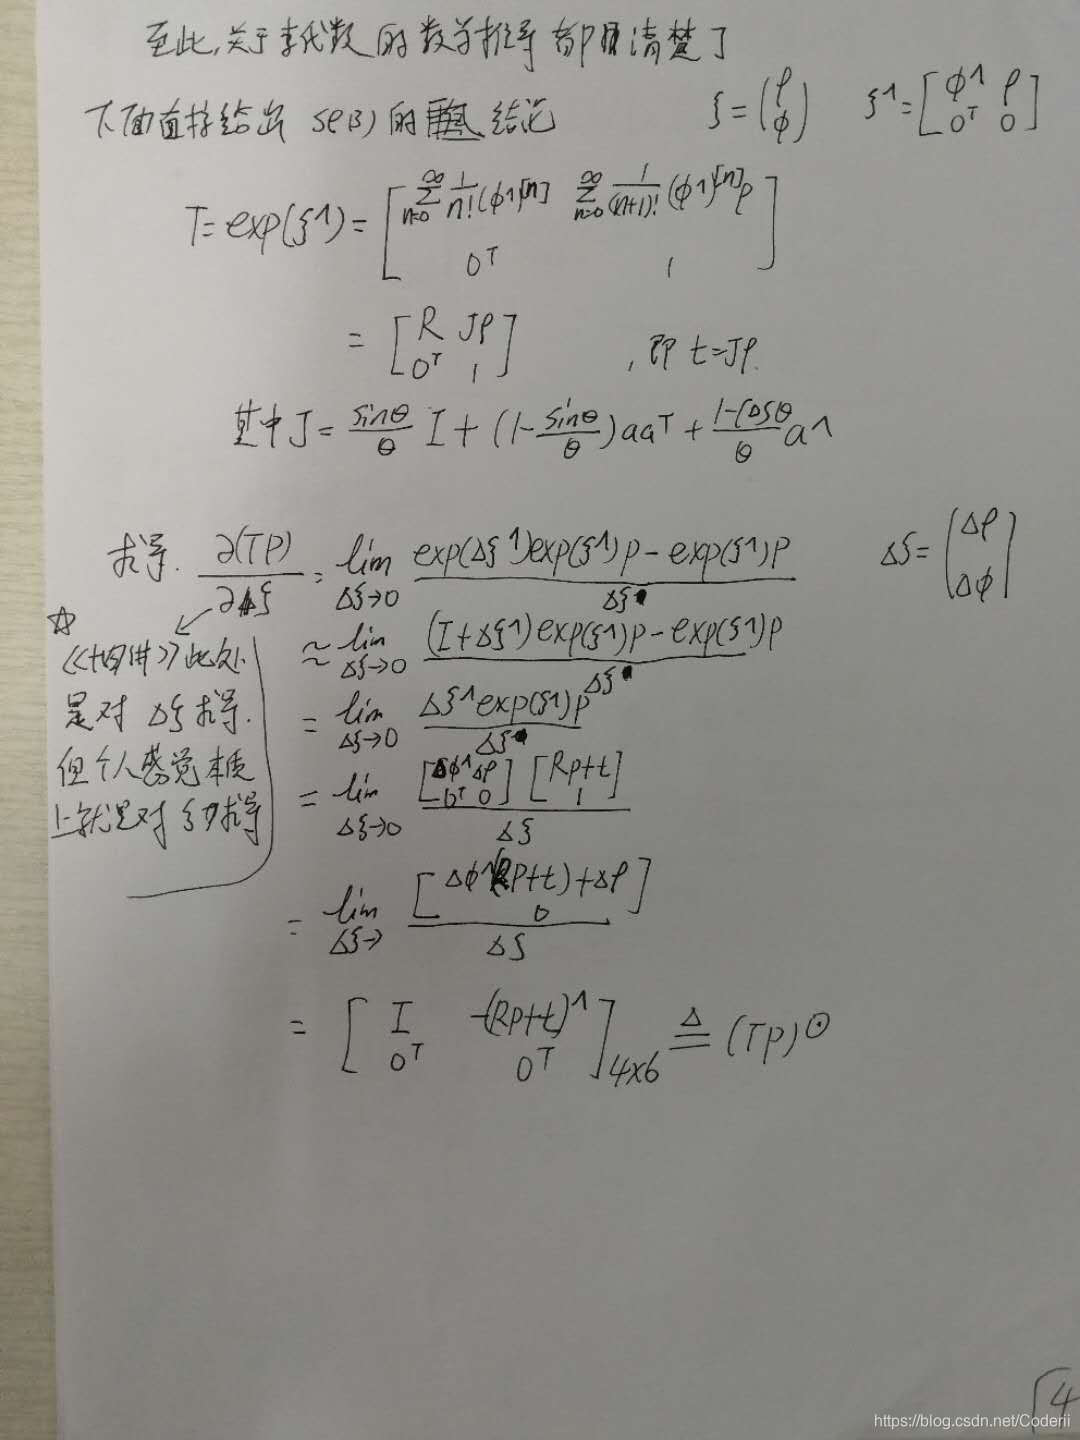 至此,关于李代数的数学推导都清楚了
下面直接给出 se(3)的 结论
ξ=(ρ ϕ) ξ^=[ϕ^ ρ 0ᵀ 0]
T=exp(ξ^)=[∑_{n=0}^∞ 1/n! (ϕ^)[n] ∑_{n=0}^∞ 1/(n+1)! (ϕ^)[n]ρ
0ᵀ 1]
=[R Jρ 0ᵀ 1] ,即 t=Jρ.
其中J= sinθ/θ I+(1-sinθ/θ)aaᵀ+ 1-cosθ/θ a^
求导. ∂(TP)/∂Δξ = lim Δξ→0 exp(Δξ^)exp(ξ^)p-exp(ξ^)p / Δξ
Δξ=(Δρ Δϕ)
☆
《十四讲》此处
是对 Δξ求导.
但个人感觉本质
上就是对ξ求导
≈ lim Δξ→0 (I+Δξ^)exp(ξ^)p-exp(ξ^)p / Δξ
= lim Δξ→0 Δξ^exp(ξ^)p / Δξ
= lim Δξ→0 [Δϕ^ Δρ 0ᵀ 0] [Rp+t 1] / Δξ
= lim Δξ→ [Δϕ^(Rp+t)+Δρ 0] / Δξ
= [I -(Rp+t)^ 0ᵀ 0ᵀ]4x6 ≜ (Tp)⊙
4
https://blog.csdn.net/Coderii